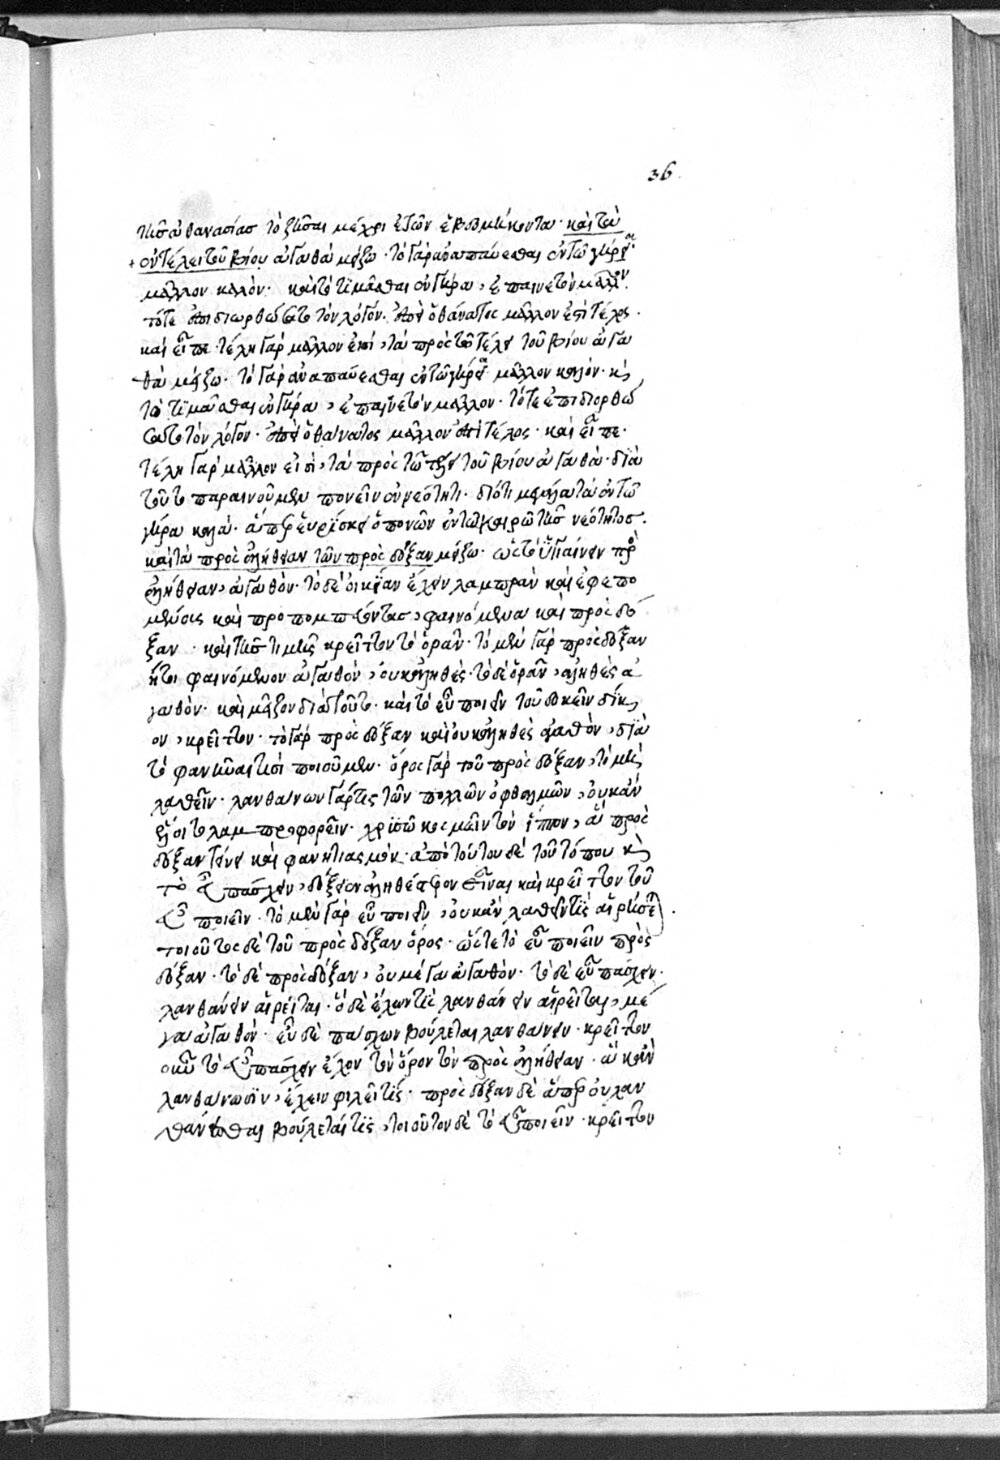 36
τῆς ἀθανασίας τὸ ζῆσαι μέχρι ἐτῶν ἑβδομήκοντα· καὶ τὰ
ἐν τέλει τοῦ βίου ἀγαθὰ μείζω· τὸ γὰρ ἀναπαύεσθαι ἐν τῷ γήρᾳ
μᾶλλον καλόν· καὶ τὸ τιμᾶσθαι ἐν γήρᾳ, ἐπαινετὸν μᾶλλον·
τότε ἐπιδιωρθώσατο τὸν λόγον· ἐπεὶ ὁ θάνατος μᾶλλον ἐπὶ τέλος·
καὶ εἶπε· τέλη γὰρ μᾶλλον εἰσί, τὰ πρὸς τῷ τέλει τοῦ βίου ἀγα
θὰ μείζω· τὸ γὰρ ἀναπαύεσθαι ἐν τῷ γήρᾳ μᾶλλον καλόν· καὶ
τὸ τιμᾶσθαι ἐν γήρᾳ, ἐπαινετὸν μᾶλλον· τότε ἐπιδιορθώ
σατο τὸν λόγον· ἐπεὶ ὁ θάνατος μᾶλλον ἐπὶ τέλος· καὶ εἶπε·
τέλη γὰρ μᾶλλον εἰσί, τὰ πρὸς τῷ τέλει τοῦ βίου ἀγαθά· διὰ
τοῦτο παραινοῦμεν πονεῖν ἐν νεότητι· διότι μεγάλα τὰ ἐν τῷ
γήρᾳ καλά· ἅπερ εὑρίσκει ὁ πονῶν ἐν τῷ καιρῷ τῆς νεότητος·
καὶ τὰ πρὸς ἀλήθειαν τῶν πρὸς δόξαν μείζω· ὥστε τὸ ὑγιαίνειν πρὸς
ἀλήθειαν, ἀγαθόν· τὸ δὲ οἰκίαν ἔχειν λαμπρὰν καὶ ἐφεπο
μένους καὶ προπομπεύοντας, φαινόμενα καὶ πρὸς δό
ξαν· καὶ τῆς τιμῆς κρεῖττον τὸ ὁρᾶν· τὸ μὲν γὰρ πρὸς δόξαν
ἤτοι φαινόμενον ἀγαθὸν, οὐκ ἀληθές· τὸ δὲ ὁρᾶν, ἀληθὲς ἀ
γαθόν· καὶ μεῖζον διὰ τοῦτο· καὶ τὸ εὖ ποιεῖν τοῦ δοκεῖν δίκαι
ον, κρεῖττον· τὸ γὰρ πρὸς δόξαν καὶ οὐκ ἀληθὲς ἀγαθὸν, διὰ
τὸ φανῆναί τισι ποιοῦμεν· ὅρος γὰρ τοῦ πρὸς δόξαν, τὸ μὴ
λαθεῖν· λανθάνων γάρ τις τῶν πολλῶν ὀφθαλμῶν, οὐκ ἂν
ἕλοιτο λαμπροφορεῖν· χρυσῷ κοσμεῖν τὸν ἵππον, ἃ πρὸς
δόξαν τείνει καὶ φανητιασμόν· ἀπὸ τούτου δὲ τοῦ τόπου καὶ
τὸ εὖ πάσχειν, δόξειεν ἀληθέστερον εἶναι καὶ κρεῖττον τοῦ
εὖ ποιεῖν· τὸ μὲν γὰρ εὖ ποιεῖν, οὐκ ἂν λαθών τις αἱρήσεται
τοιοῦτος δὲ τοῦ πρὸς δόξαν ὅρος· ὥστε τὸ εὖ ποιεῖν πρὸς
δόξαν· τὸ δὲ πρὸς δόξαν, οὐ μέγα ἀγαθόν· τὸ δὲ εὖ πάσχειν·
λανθάνειν αἱρεῖται· ὃ δὲ ἔχων τις λανθάνειν αἱρεῖται, μέ
γα ἀγαθόν· εὖ δὲ πάσχων βούλεται λανθάνειν· κρεῖττον
οὖν τὸ εὖ πάσχειν ἔχον τὸν ὅρον τὸν πρὸς ἀλήθειαν· ἃ κἂν
λανθάνωσιν, ἔχειν φιλεῖ τις· πρὸς δόξαν δὲ ἅπερ οὐ λαν
θάνεσθαι βούλεταί τις, τοιοῦτον δὲ τὸ εὖ ποιεῖν· κρεῖττον